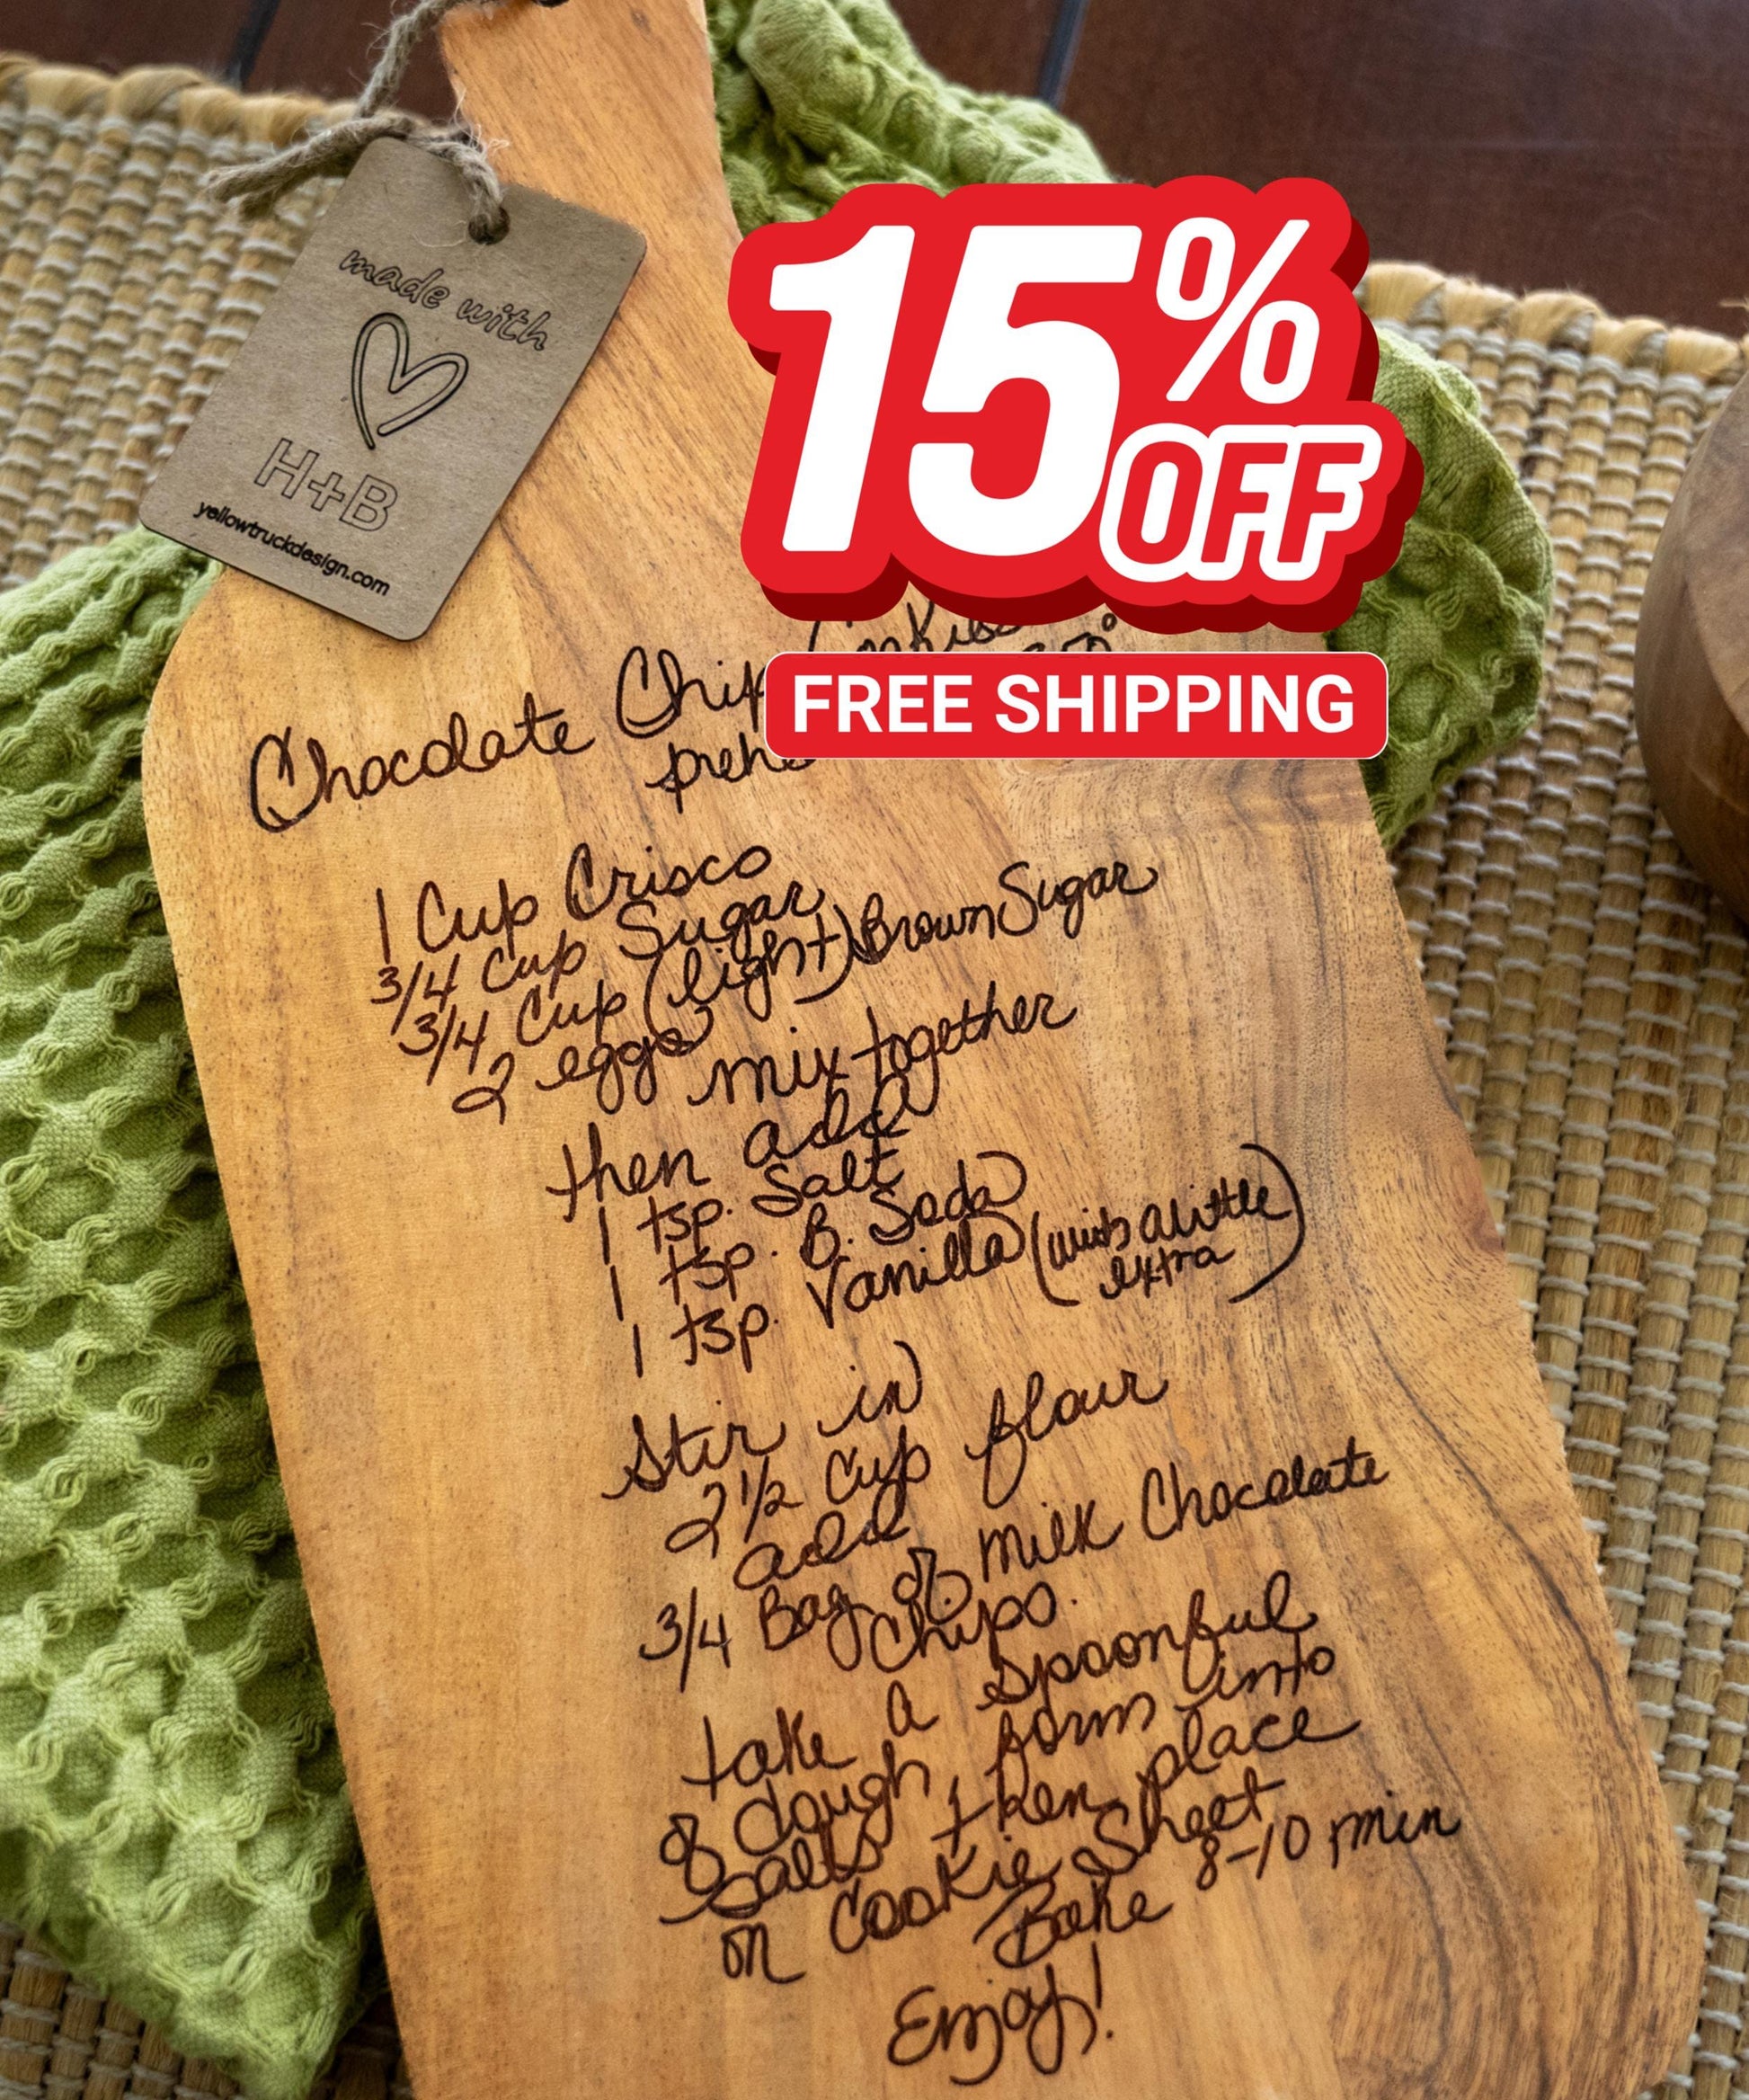 made with
H+B
yellowtruckdesign.com
15%
OFF
FREE SHIPPING
Chocolate Chip Cookies
350°
1 Cup Crisco
3/4 Cup Sugar
3/4 Cup (light) Brown Sugar
2 eggs mix together
then add
1 tsp. Salt
1 tsp. B. Soda
1 tsp. Vanilla (with a little
extra)
Stir in
2 1/2 cup flour
add
3/4 Bag of Milk Chocolate
Chips.
take a spoonful
of dough, form into
balls then place
on Cookie Sheet
Bake 8-10 min
Enjoy!